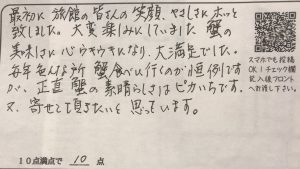 最初に旅館の皆さんの笑顔、やさしさにホッと
致しました。大変楽しみにしていました蟹の
美味に心うきうきになり、大満足でした。
毎年色んな所 蟹食べに行くのが恒例です
が、正直 蟹の素晴らしさはピカいちです。
又、寄せて頂きたいと思っています。
10点満点で 10 点
スマホでも投稿
OK！チェック欄
記入後フロント
へお渡し下さい。